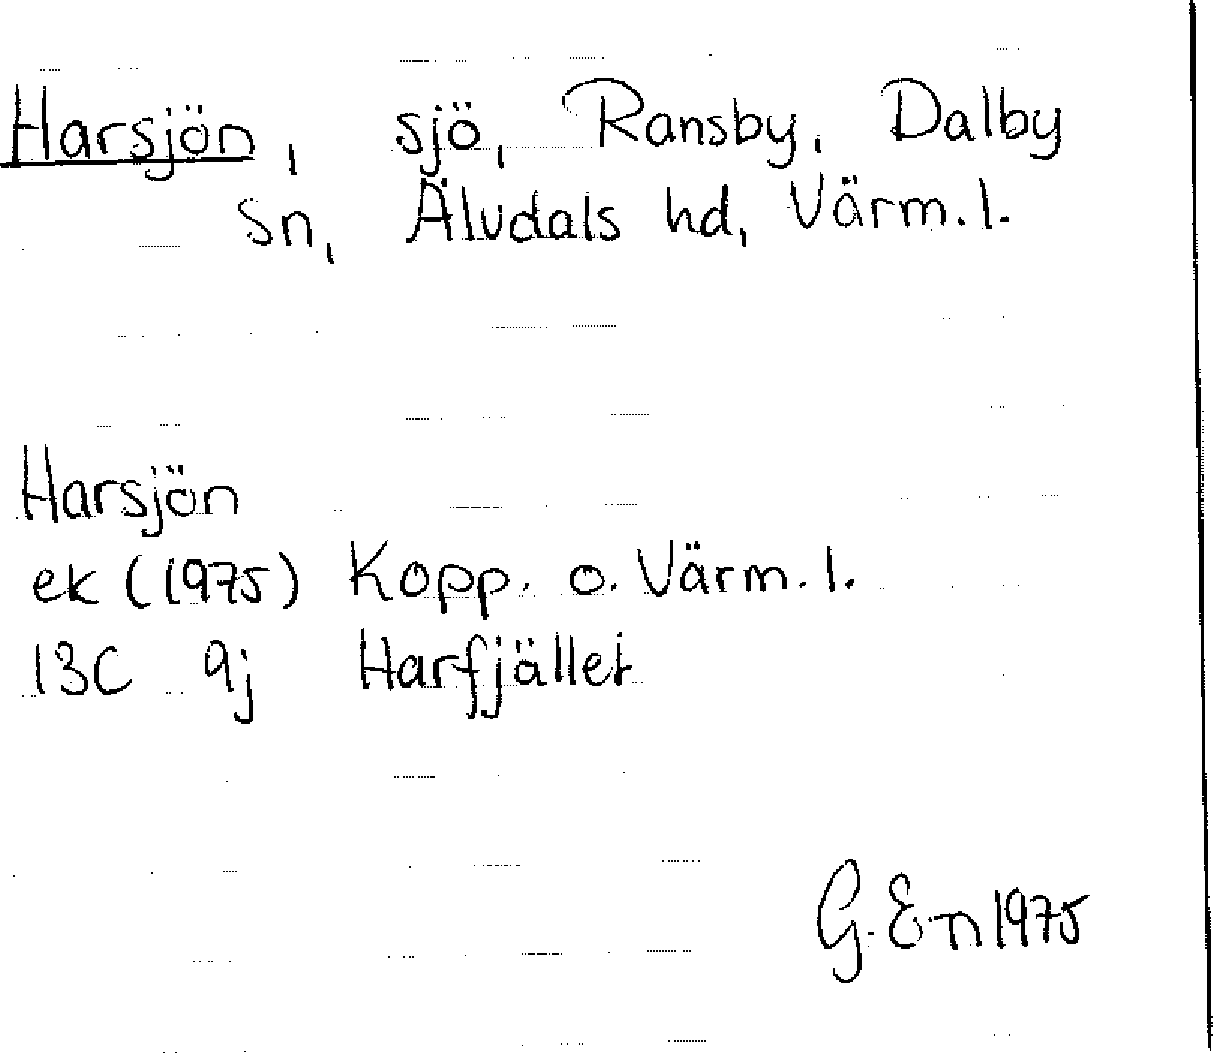 Harsjön, sjö, Ransby, Dalby
sn, Älvdals hd, Värm. l.
Harsjön
ek (1975) Kopp. o. Värm. l.
13C 9j Harfjället
G. E-n 1975